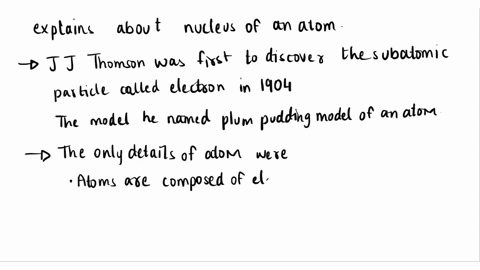 explains about nucleus of an atom.
→ J J Thomson was first to discover the subatomic
particle called electron in 1904
The model he named plum pudding model of an atom
→ The only details of atom were
• Atoms are composed of el.